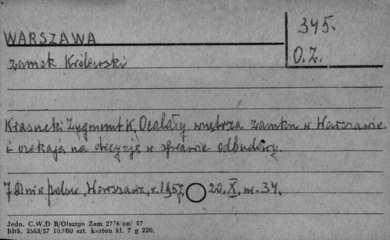 WARSZAWA
345.
Zamek Królewski
O.Z.
Krasucki Zygmunt K. Ocalały wnętrza zamku w Warszawie
i czekają na decyzję w sprawie odbudowy.
7 Dni w Polsce, Warszawa, r. 1957, 20. X, nr. 34.
Jedn. C.W.D B/Olsztyn Zam 2776/em/ 57
bltk. 2563/57 10.000 szt. karton kl. 7 g 220.